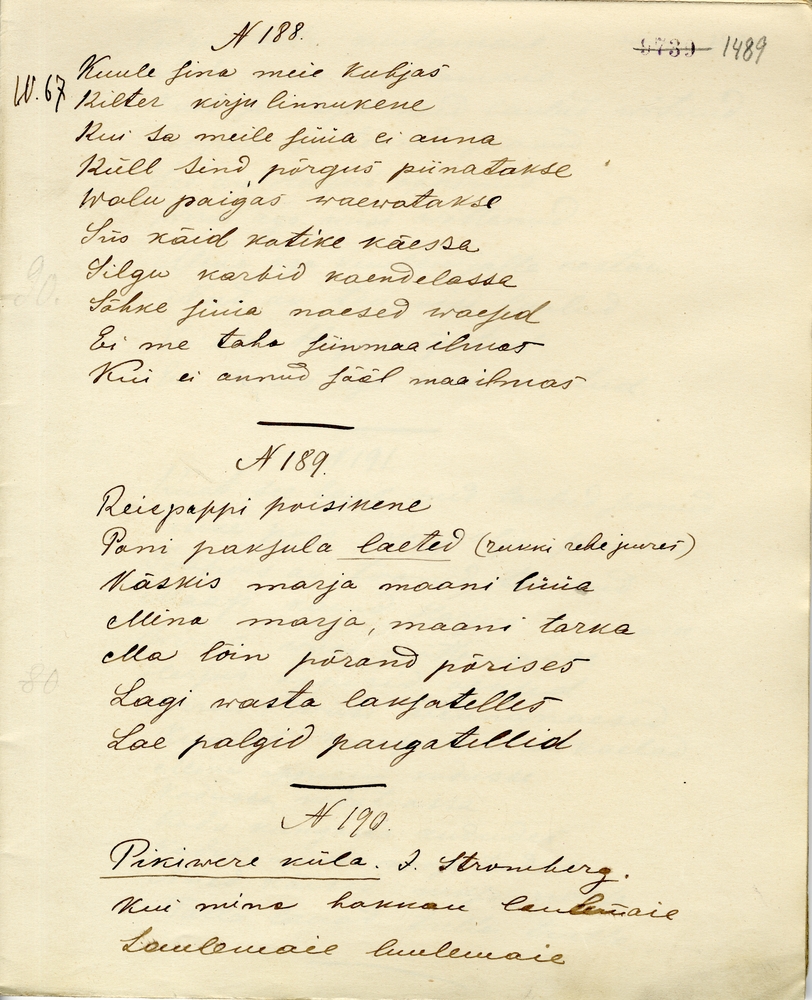 N 188.
9739 1489
IV. 67
Kuule sina meie kubjas
Kilter kirju linnukene
Kui sa meile süüa ei anna
Küll sind põrgus piinatakse
Walu paigas waewatakse
Siis käid kotike käessa
Silgu karbid kaendelassa
Sõhke süüa naesed waesed
Ei me taha siinmaailmas
Kui ei annud sääl maailmas
90.
N 189.
Reiepappi poisikene
Pani paksula laeted (rukki rehe juures)
Käskis marja maani lüüa
Mina marja, maani tarka
Ma lõin põrand põrises
80
Lagi wasta laksatelles
Lae palgid paugatellid
N 190.
Pikiwere küla. J. Stromberg.
Kui mina hakkan laulemaie
Laulemaie luulemaie